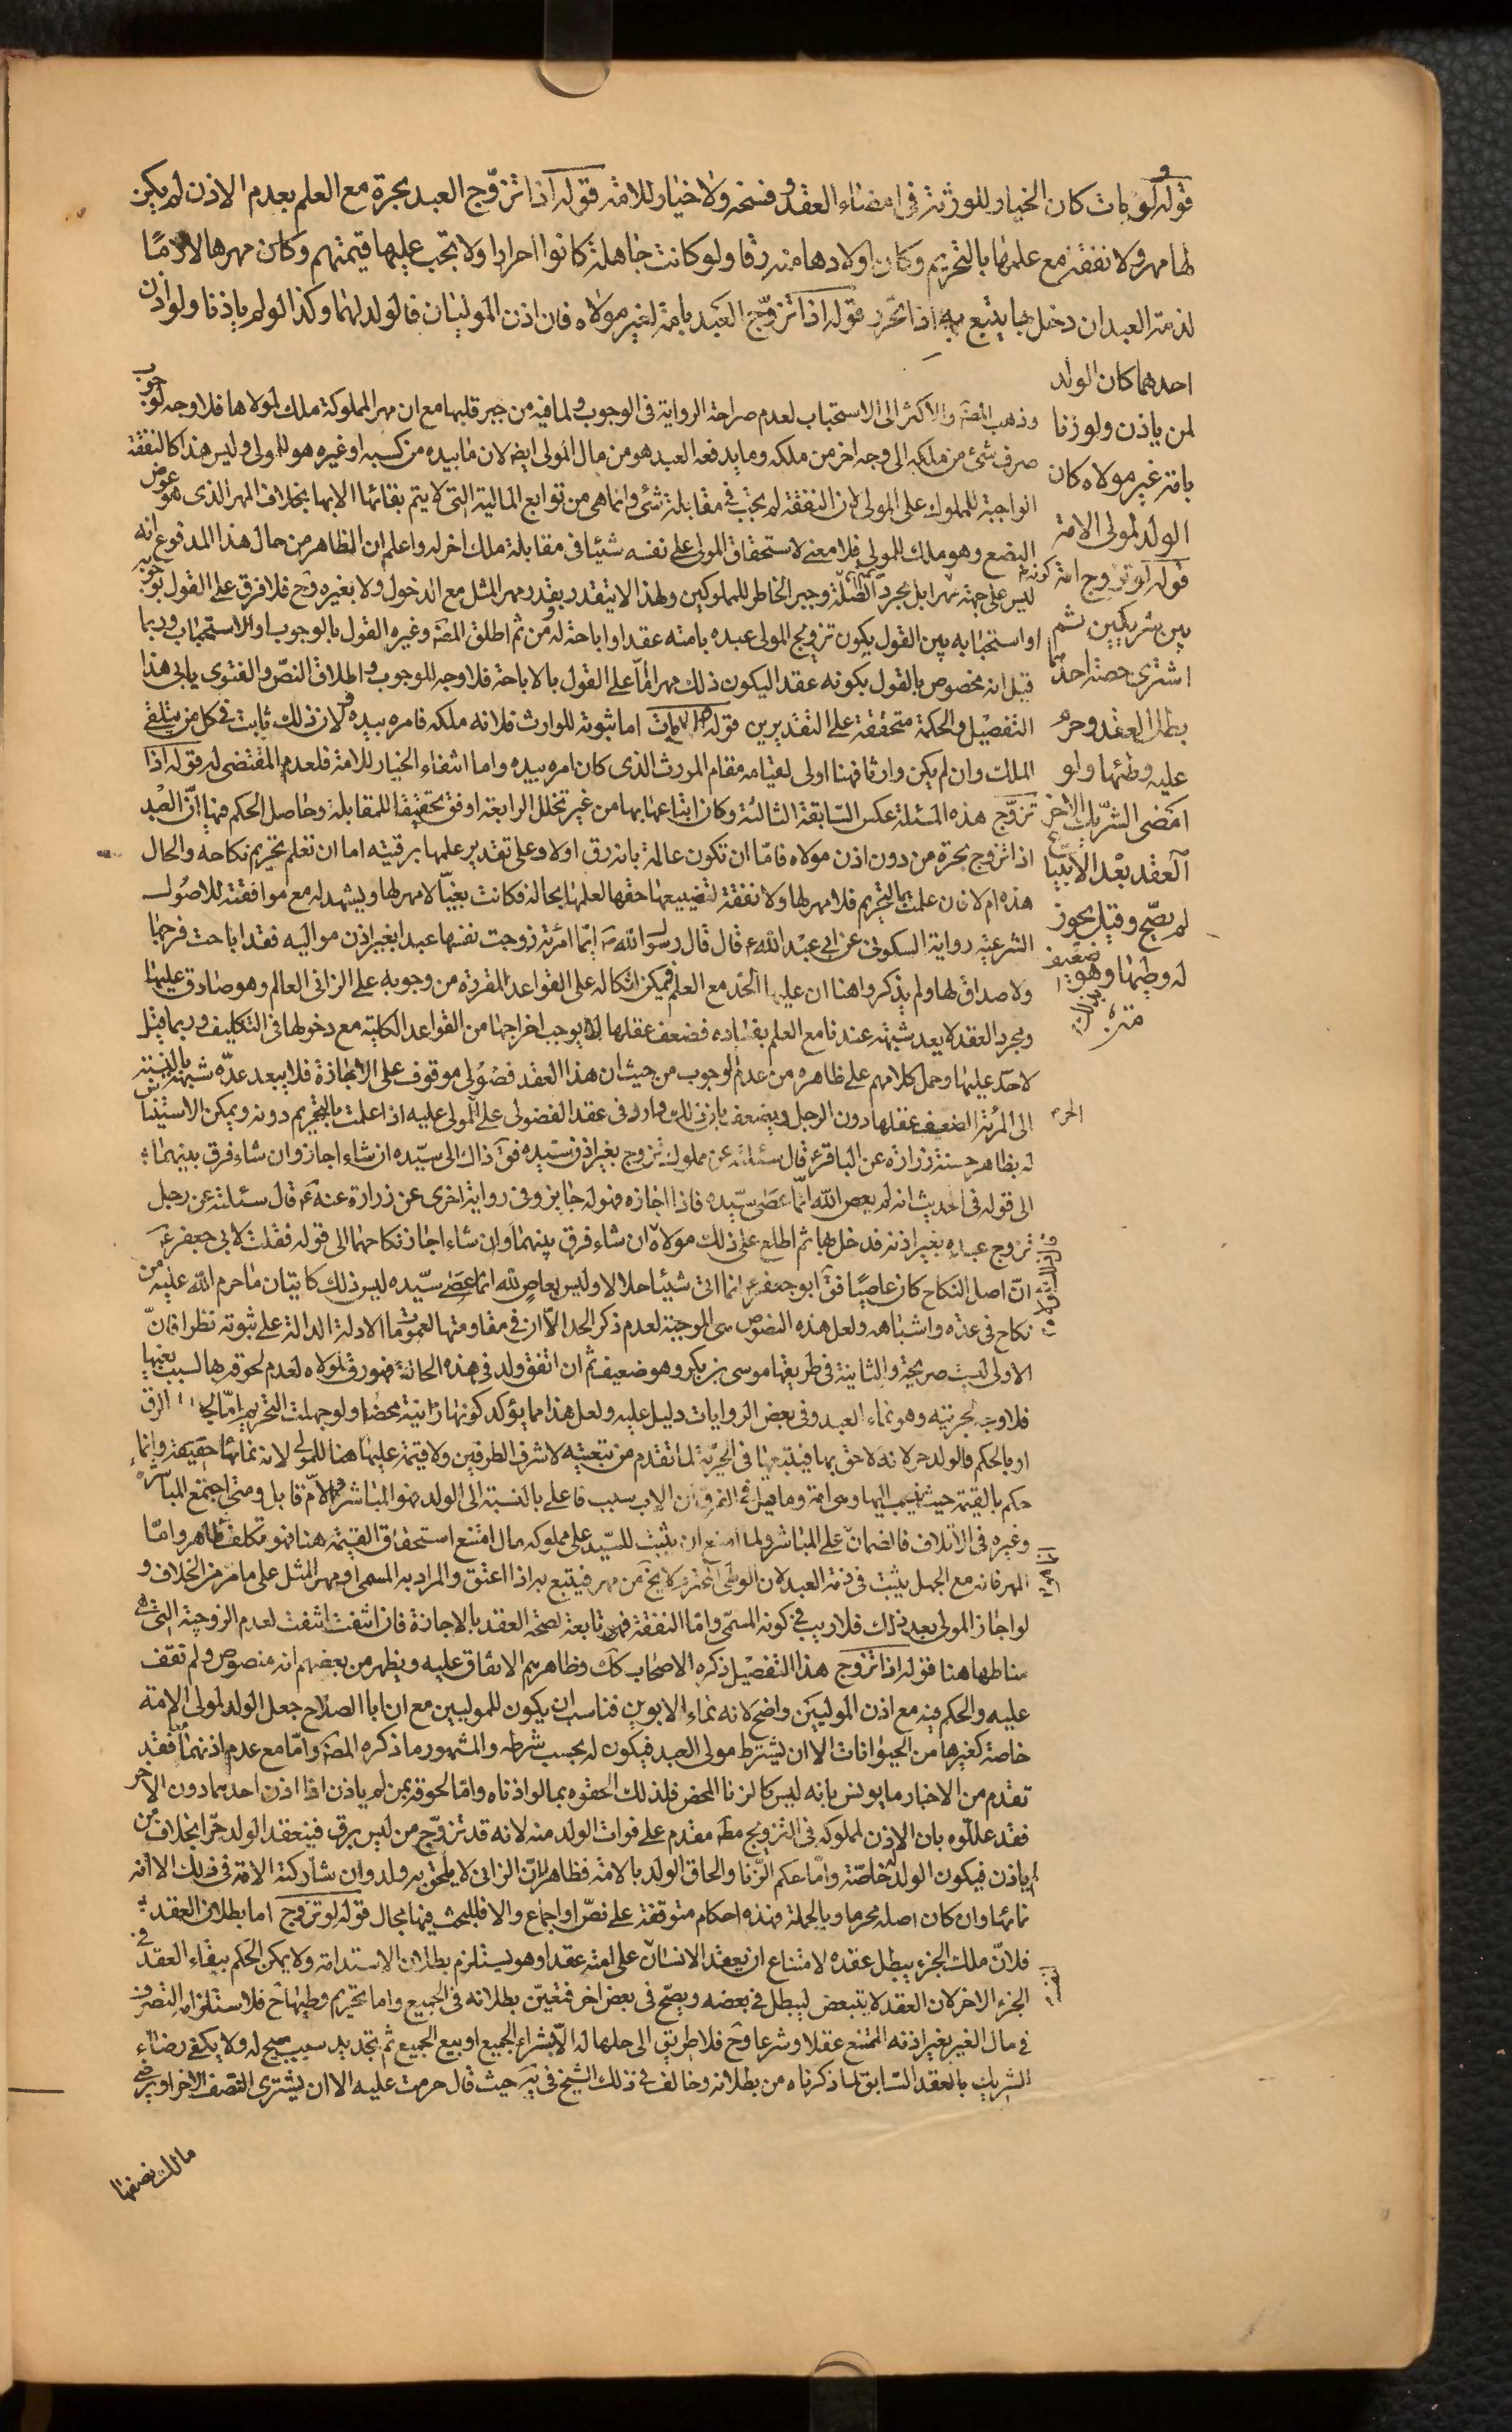 قوله ولو مات كان الخيار للورثة فى امضاء العقد و فسخه ولا خيار للامة قوله اذا تزوّج العبد بحرة مع العلم بعدم الاذن لم يكن
لها مهر ولا نفقة مع علمها بالتحريم وكان اولادها منه رقا ولو كانت جاهلة كانوا احرارا ولا تجب عليها قيمتهم وكان مهرها لازمًا
لذمة العبد ان دخل بها يتبع به اذا تحرّر قوله اذا تزوّج العبد بامة لغير مولاه فان اذن الموليان فالولد لهما وكذا لو لم ياذنا ولو اذن
احدهما كان الولد
لمن ياذن ولو زنا
بامة غير مولاه كان
الولد لمولى الامة
قوله لو تزوج امة
بين شريكين ثم
اشترى حصة احدهما
بطل العقد وحرم
عليه وطئها ولو
امضى الشريك الاخر
العقد بعد الابتياع
لم يصحّ وقيل يجوز
له وطيها وهو ضعيف
وذهب المصّ والاكثر الى الاستحباب لعدم صراحة الرواية فى الوجوب ولما فيه من جبر قلبها مع ان مهر المملوكة ملك لمولاها فلا وجه لوجوب
صرف شئ من ملكه الى وجه اخر من ملكه وما يدفعه العبد هو من مال المولى ايض لان ما بيده من كسبه او غيره هو للمولى وليس هذا كالنفقة
الواجبة للمملوك على المولى لان النفقة لم تجب فى مقابلة شئ وانما هى من توابع المالية التى لا يتم بقائها الا بها بخلاف المهر الذى هو عوض
البضع وهو ملك للمولى فلا معنى لاستحقاق المولى على نفسه شيئا فى مقابلة ملك اخر له واعلم ان الظاهر من حال هذا المدفوع انه
ليس على جهة كونه مهرا بل بمجرد الصّلة وجبر الخاطر للمملوكين ولهذا لا يتقدر بقدر مهر المثل مع الدخول ولا بغيره وح فلا فرق على القول بوجوبه
او استحبابه بين القول بكون تزويج المولى عبده بامته عقدا او اباحة ومن ثم اطلق المصّ وغيره القول بالوجوب او الاستحباب وربما
قيل انه مخصوص بالقول بكونه عقدا ليكون ذلك مهرا امّا على القول بالاباحة فلا وجه للوجوب واطلاق النصّ والفتوى يابى هذا
التفصيل والحكمة متحققة على التقديرين قوله ولو مات اما ثبوته للوارث فلانه ملكه فامره بيده ولان ذلك ثابت فى كل من يتلقى
الملك وان لم يكن وارثا فهنا اولى لقيامه مقام المورث الذى كان امره بيده واما انتفاء الخيار للامة فلعدم المقتضى له قوله اذا
تزوّج هذه المسئلة عكس السّابقة الثالثة وكان اتباعها بها من غير تخلل الرابعة اوفق تحقيقا للمقابلة وحاصل الحكم فيها انّ العبد
اذا تزوج بحرة من دون اذن مولاه فامّا ان تكون عالمة بانه رق اولا وعلى تقدير علمها برقيته اما ان تعلم تحريم نكاحه والحال
هذه ام لا فان علمت التحريم فلا مهر لها ولا نفقة لتضييعها حقها لعلمها بحاله فكانت بغيّا لا مهر لها ويشهد له مع موافقته للاصول
الشرعيّه رواية السكونى عن ابى عبد الله ع قال قال رسول الله ص ايّما امرئة زوجت نفسها عبدا بغير اذن مواليه فقد اباحت فرجها
ولا صداق لها ولم يذكروا هنا ان عليها الحدّ مع العلم فيمكن اتكاله على القواعد المقررة من وجوبه على الزانى العالم وهو صادق عليها
ومجرد العقد لا يعد شبهة عندنا مع العلم بفساده فضعف عقلها لا يوجب اخراجها من القواعد الكلية مع دخولها فى التكليف وربما قيل
لا حدّ عليها وحمل كلامهم على ظاهره من عدم الوجوب من حيث ان هذا العقد فضولى موقوف على الاجازة فلا يبعد عدّه شبهة بالنسبة
الى المرئة الضعيف عقلها دون الرجل ويضعف بان ذلك وارد فى عقد الفضولى على المولى عليه اذا علمت بالتحريم دونه ويمكن الاستيناس
له بظاهر حسنة زرارة عن الباقر ع قال سئلته عن مملوك تزوج بغير اذن سيّده فق ذاك الى سيّده ان شاء اجاز وان شاء فرق بينهما
الى قوله فى الحديث انه لم يعص الله انّما عصى سيّده فاذا اجازه فهو له جايز وفى رواية اخرى عن زرارة عنه ع قال سئلته عن رجل
تزوج عبده بغير اذنه فدخل بها ثم اطلع على ذلك مولاه ان شاء فرق بينهما وان شاء اجاز نكاحهما الى قوله فقلت لابى جعفر ع
انّ اصل النكاح كان عاصيًا فق ابو جعفر ع انما اتى شيئا حلالا وليس بعاص لله انما عصى سيّده ليس ذلك كاتيان ما حرم الله عليه من
نكاح فى عدّه واشباهه ولعل هذه النصوص هى الموجبة لعدم ذكر الحد الا ان فى مقاومتها لعموم الادلة الدالة على ثبوته نظرا فانّ
الاولى ليست صريحة والثانية فى طريقها موسى بن بكر وهو ضعيف ثم ان اتفق ولد فى هذه الحالة فهو رق لمولاه لعدم لحوقه بها لسبب بغيها
فلا وجه لحريته وهو نماء العبد وفى بعض الروايات دليل عليه ولعل هذا مما يؤكد كونها زانية محضا ولو جهلت التحريم امّا الرق
او بالحكم فالولد حر لانه لاحق بها فيتبعها فى الحرّية لما تقدم من تبعيته لاشرف الطرفين ولا قيمة عليها هنا للمولى لانه نمائها حقيقة وانما
حكم بالقيمة حيث ينسب اليها وهى امة وما قيل فى الفرق ان الاب سبب فاعلى بالنسبة الى الولد فهو المباشر والامّ قابل ومتى اجتمع المباشر
وغيره فى الاتلاف فالضمان على المباشر ولما امتنع ان يثبت للسيّد على مملوكه مال امتنع استحقاق القيمة هنا فهو تكلف ظاهر وامّا
المهر فانه مع الجهل يثبت فى ذمة العبد لان الوطى المحترم لا يخ من مهر فيتبع به اذا اعتق والمراد به المسمى او مهر المثل على ما مر من الخلاف و
لو اجاز المولى بعد ذلك فلا ريب فى كونه المسمّى وامّا النفقة فهى تابعة لصحة العقد بالاجازة فان انتفت انتفت لعدم الزوجية التى هى
مناطها هنا قوله اذا تزوج هذا التفصيل ذكره الاصحاب كك وظاهرهم الاتفاق عليه ويظهر من بعضهم انه منصوص ولم نقف
عليه والحكم فيه مع اذن الموليين واضح لانه نماء الابوين فناسب ان يكون للموليين مع ان ابا الصلاح جعل الولد لمولى الامة
خاصة كغيرها من الحيوانات الا ان يشترط مولى العبد فيكون له بحسب شرطه والمشهور ما ذكره المصّ وامّا مع عدم اذنهما فقد
تقدم من الاخبار ما يونس بانه ليس كالزنا المحض فلذلك الحقوه بما لو اذناه وامّا لحوقه بمن لم ياذن اذا اذن احدهما دون الاخر
فقد علّلوه بان الاذن لمملوكه فى التزويج مط مقدم على فوات الولد منه لانه قد تزوّج من ليس برق فينعقد الولد حرّا بخلاف من
لم ياذن فيكون الولد له خاصّة وامّا حكم الزّنا والحاق الولد بالامة فظاهر لانّ الزانى لا يلحق به ولد وان شاركته الامة فى ذلك الا انه
نمائها وان كان اصله محرما وبالجملة فهذه احكام متوقفة على نصّ او اجماع والا فللبحث فيها مجال قوله لو تزوج اما بطلان العقد
فلانّ ملك الجزء يبطل عقده لامتناع ان يعقد الانسان على امته عقدا وهو يستلزم بطلان الاستدامة ولا يمكن الحكم ببقاء العقد فى
الجزء الاخر لان العقد لا يتبعض ليبطل فى بعضه ويصحّ فى بعض اخر فتعيّن بطلانه فى الجميع واما تحريم وطيها ح فلاستلزامه التصرف
فى مال الغير بغير اذنه الممتنع عقلا وشرعا وح فلا طريق الى حلها له الّا بشراء الجميع او بيع الجميع ثم تجديد سبب مبيح له ولا يكفى رضاء
الشريك بالعقد السّابق لما ذكرناه من بطلانه وخالف فى ذلك الشيخ فى يه حيث قال حرمت عليه الا ان يشترى النصف الاخر او يرضى
مالك نصفها